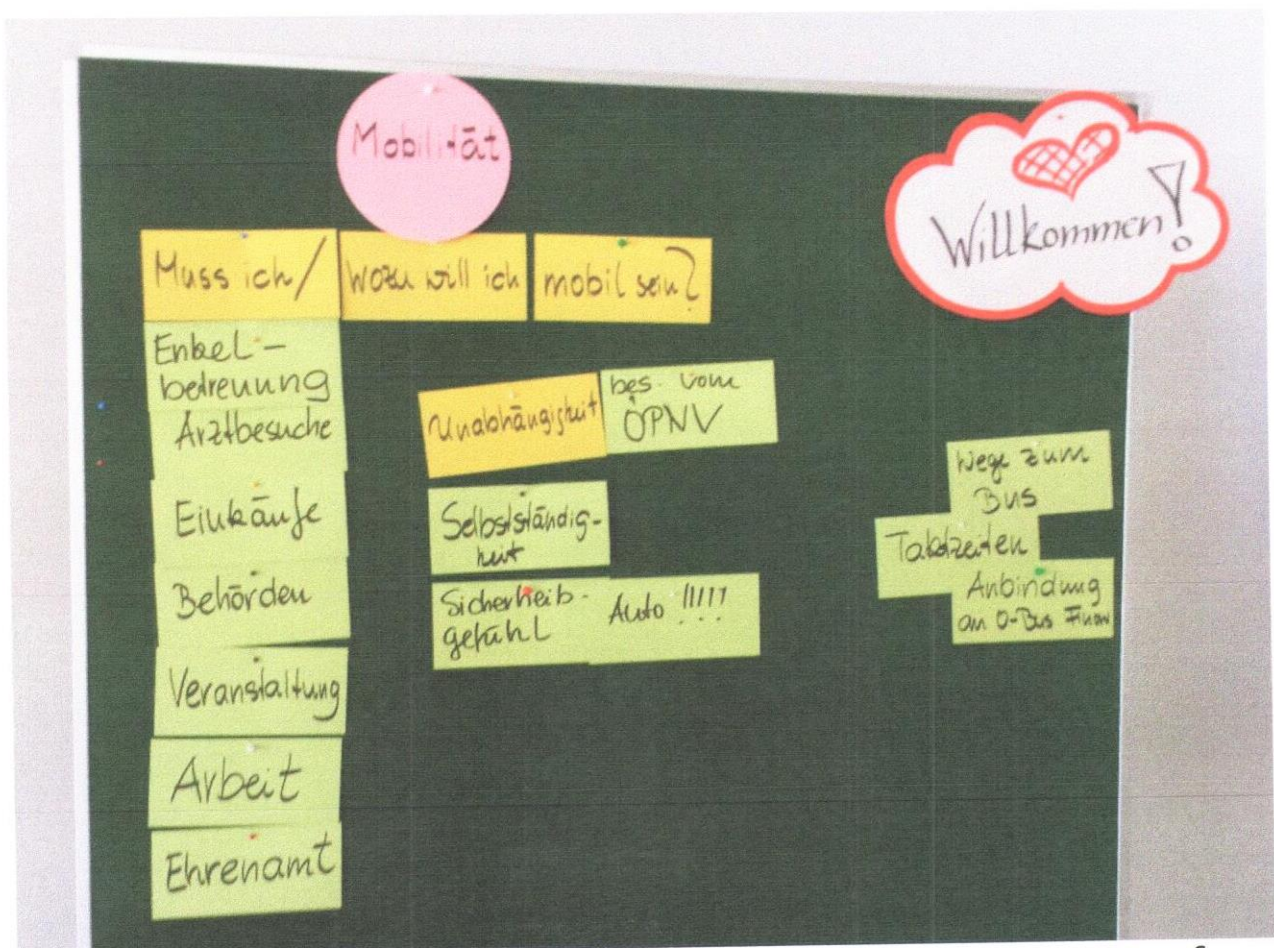 Mobilität
Willkommen!
Muss ich / wozu will ich mobil sein?
Enkel-
betreuung
Arztbesuche
Einkäufe
Behörden
Veranstaltung
Arbeit
Ehrenamt
Unabhängigkeit
bes. vom
ÖPNV
Selbstständig-
keit
Sicherheits-
gefühl
Auto !!!!!
Wege zum
Bus
Taktzeiten
Anbindung
an O-Bus Finow